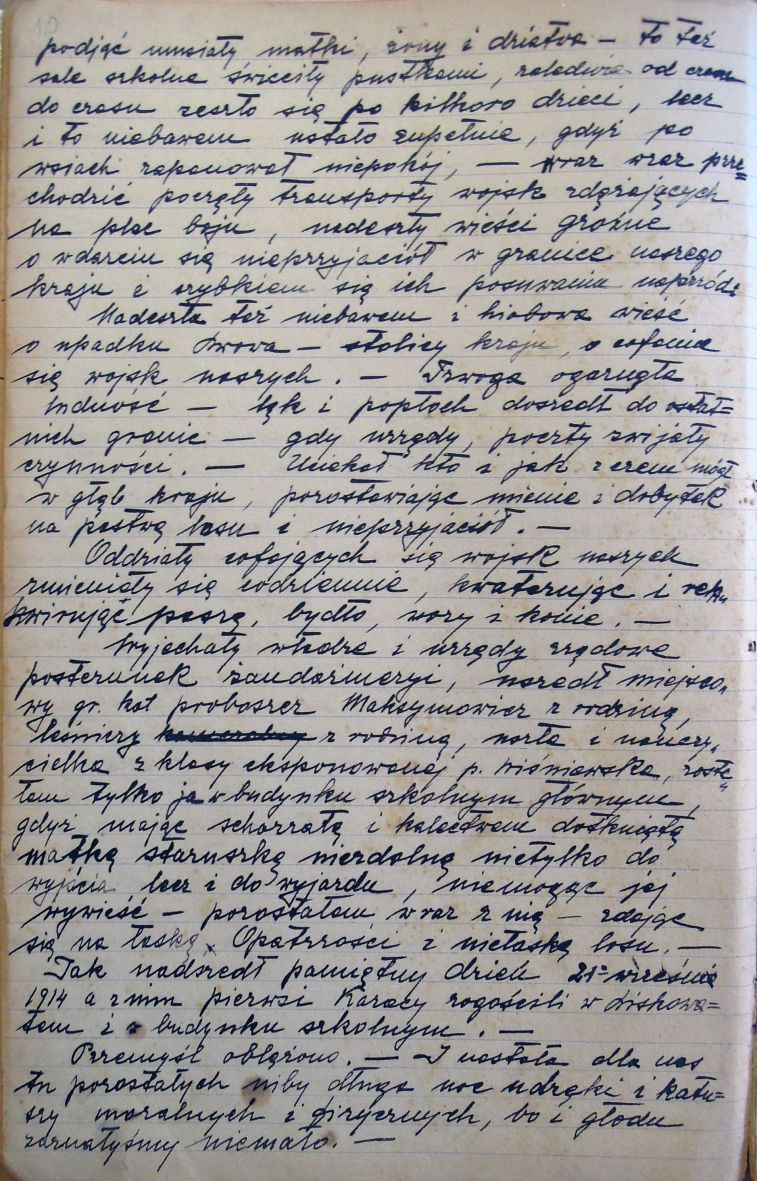 10
podjąć musiały matki, żony i dziatwa — to też
sale szkolne świeciły pustkami, zaledwie od czasu
do czasu zeszło się po kilkoro dzieci, lecz
i to niebawem ustało zupełnie, gdyż po
wsiach zapanował niepokój, — wraz wraz prze=
chodzić poczęły transporty wojsk zdążających
na plac boju, nadeszły wieści groźne
o wdarciu się nieprzyjaciół w granice naszego
kraju i szybkiem się ich posuwaniu naprzód.
Nadeszła też niebawem i hiobowa wieść
o upadku Lwowa — stolicy kraju, o cofaniu
się wojsk naszych. — Trwoga ogarnęła
ludność — lęk i popłoch doszedł do ostat=
nich granic — gdy urzędy, poczty zwijały
czynności. — Uciekał kto i jak z czem mógł
w głąb kraju, pozostawiając mienie i dobytek
na pastwę losu i nieprzyjaciół. —
Oddziały cofających się wojsk naszych
zmieniały się codziennie, kwaterując i rek„
kwirując paszę, bydło, wozy i konie. —
Wyjechały władze i urzędy rządowe
posterunek żandarmeryi, uszedł miejsco„
wy gr. kat proboszcz Maksymowicz z rodziną,
leśniczy z rodziną, uszła i nauczy„
cielka z klasy eksponowanej p. Wiśniewska, zosta„
łam tylko ja w budynku szkolnym głównym,
gdyż mając schorzałą i kalectwem dotkniętą
matką staruszką niezdolną nietylko do
wyjścia lecz i do wyjazdu, niemogąc jej
wywieść — pozostałam wraz z nią — zdając
się na łaskę Opatrzości i niełaskę losu. —
Tak nadszedł pamiętny dzień 21- września
1914 a z nim pierwsi Kozacy zagościli w Liskowa=
tem i w budynku szkolnym. —
Przemyśl oblężono. — I nastała dla nas
tu pozostałych niby długa noc udręki i katu=
szy moralnych i fizycznych, bo i głodu
zaznałyśmy niemało. —